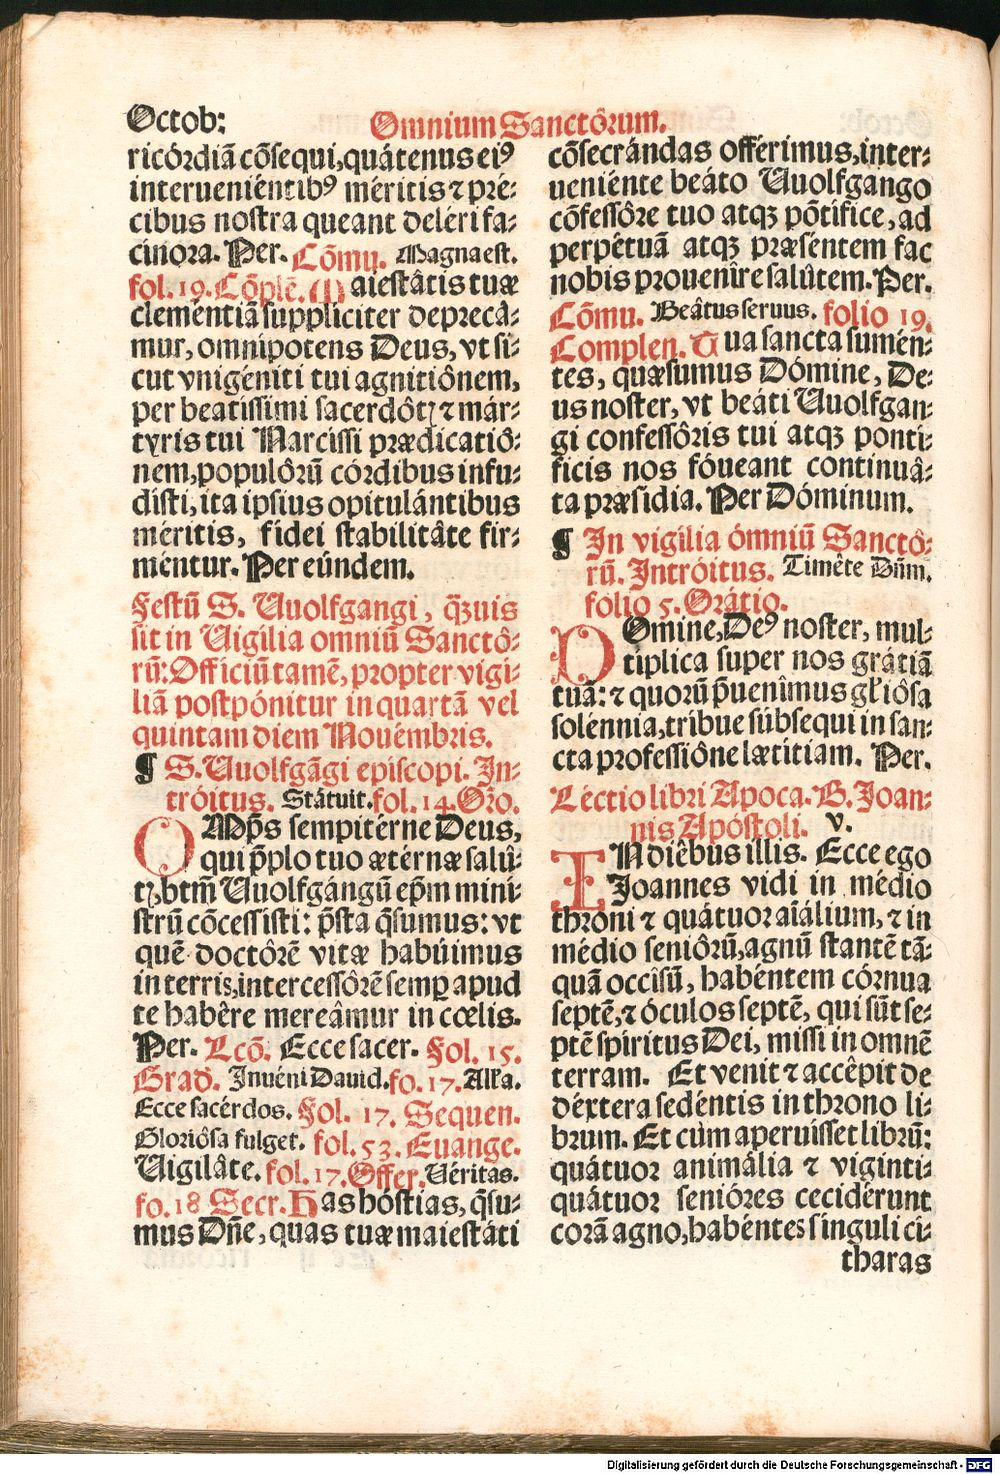 Octob:
Omnium Sanctôrum.
ricórdiã cõsequi, quátenus ei⁹
interueniéntib⁹ méritis ⁊ pré-
cibus nostra queant deléri fa-
cinora. Per. Cõmu. Magna est.
fol. 19. Cõplẽ. Maiestâtis tuæ
clementiã suppliciter deprecâ-
mur, omnipotens Deus, vt si-
cut vnigéniti tui agnitiônem,
per beatissimi sacerdôtꝭ ⁊ már-
tyris tui Narcissi prædicatiô-
nem, populôrũ córdibus infu-
disti, ita ipsius opitulántibus
méritis, fidei stabilitâte fir-
méntur. Per eúndem.
Festũ S. Vuolfgangi, q̃zuis
sit in Vigilia omniũ Sanctô-
rũ: Officiũ tamẽ, propter vigi-
liã postpónitur in quartã vel
quintam diem Nouémbris.
¶ S. Vuolfgãgi episcopi. In-
tróitus. Státuit. fol. 14. Oro.
OMp̃s sempitérne Deus,
qui p̃plo tuo ætérnæ salû-
tꝭ, btm̃ Vuolfgángũ ep̃m mini-
strũ cõcessisti: p̃sta q̃sumus: vt
quẽ doctôrẽ vitæ habúimus
in terris, intercessôrẽ semp̱ apud
te habêre mereâmur in cœlis.
Per. Lcõ. Ecce sacer. Fol. 15.
Grad. Inuéni Dauid. fo. 17. Alľa.
Ecce sacérdos. Fol. 17. Sequen.
Gloriôsa fulget. fol. 53. Euange.
Vigilâte. fol. 17. Offer. Véritas.
fo. 18 Secr. Has hóstias, q̃su-
mus Dñe, quas tuæ maiestáti
cõsecrándas offérimus, inter-
ueniénte beáto Vuolfgango
cõfessôre tuo atqꝫ põtífice, ad
perpétuã atqꝫ præséntem fac
nobis prouenîre salûtem. Per.
Cõmu. Beâtus seruus. folio 19.
Complen. Tua sancta sumén-
tes, quæsumus Dómine, De-
us noster, vt beáti Vuolfgan-
gi confessôris tui atqꝫ ponti-
ficis nos fóueant continuâ-
ta præsidia. Per Dóminum.
¶ In vigilia ómniũ Sanctô-
rũ. Intróitus. Timête Dñm.
folio 5. Orátio.
DOmine, De⁹ noster, mul-
tiplica super nos grátiã
tuã: ⁊ quorũ p̃uenîmus gľiôsa
solénnia, tribue súbsequi in san-
cta professiône lætitiam. Per.
Léctio libri Apoca. B. Ioan-
nis Apóstoli. v.
IN diêbus illis. Ecce ego
Joannes vidi in médio
throni ⁊ quátuor aĩálium, ⁊ in
médio seniôrũ, agnũ stantẽ tã-
quã occîsũ, habéntem córnua
septẽ, ⁊ óculos septẽ, qui sũt se-
ptẽ spiritus Dei, missi in omnẽ
terram. Et venit ⁊ accêpit de
déxtera sedéntis in throno li-
brum. Et cùm aperuisset librũ:
quátuor animâlia ⁊ viginti-
quátuor senióres cecidêrunt
corã agno, habéntes singuli ci-
tharas
Digitalisierung gefördert durch die Deutsche Forschungsgemeinschaft - DFG